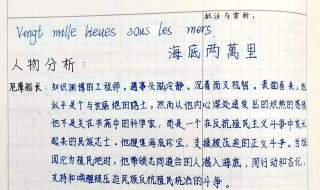 批注与赏析:
Vingt mille lieues sous les mers
海底两萬里
人物分析:
尼摩船长: 知识渊博的工程师，遇事头脑冷静，沉着而又机智。表面看来，他
似乎是个与世隔绝的隐士，然而从他内心深处迸发出的炽热的
他不是关在书斋中的科学家，而是一个在反抗殖民主义斗争中成长
起来的民族志士。他搜集海底宝，支援被压迫的正义斗争。当祖
国沦为殖民地时，他带领志同道合的人潜入海底，用行动和
支持和唤醒被压迫民族反抗殖民统治的斗争。